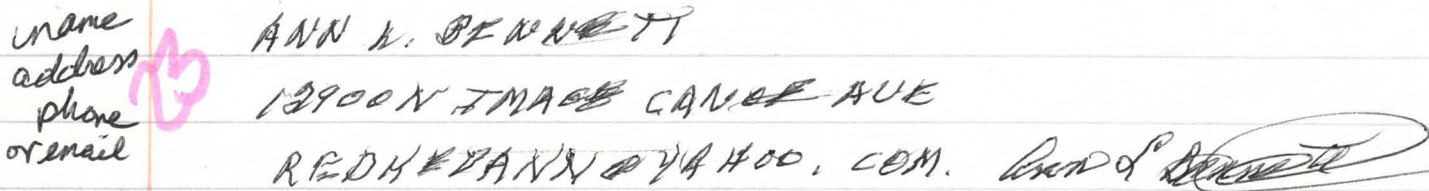 name
address
phone
or email
ANN L. BENNETT
12900 N IMAGE CANOE AVE
REDKEDANN@YAHOO.COM. Ann L Bennett